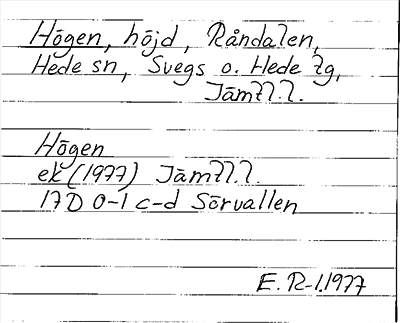 Högen, höjd, Råndalen,
Hede sn, Svegs o. Hede tg,
Jämtl.l.
Högen
ek (1977) Jämtl.l.
17D 0-1 c-d Sörvallen
E. R-l.1977